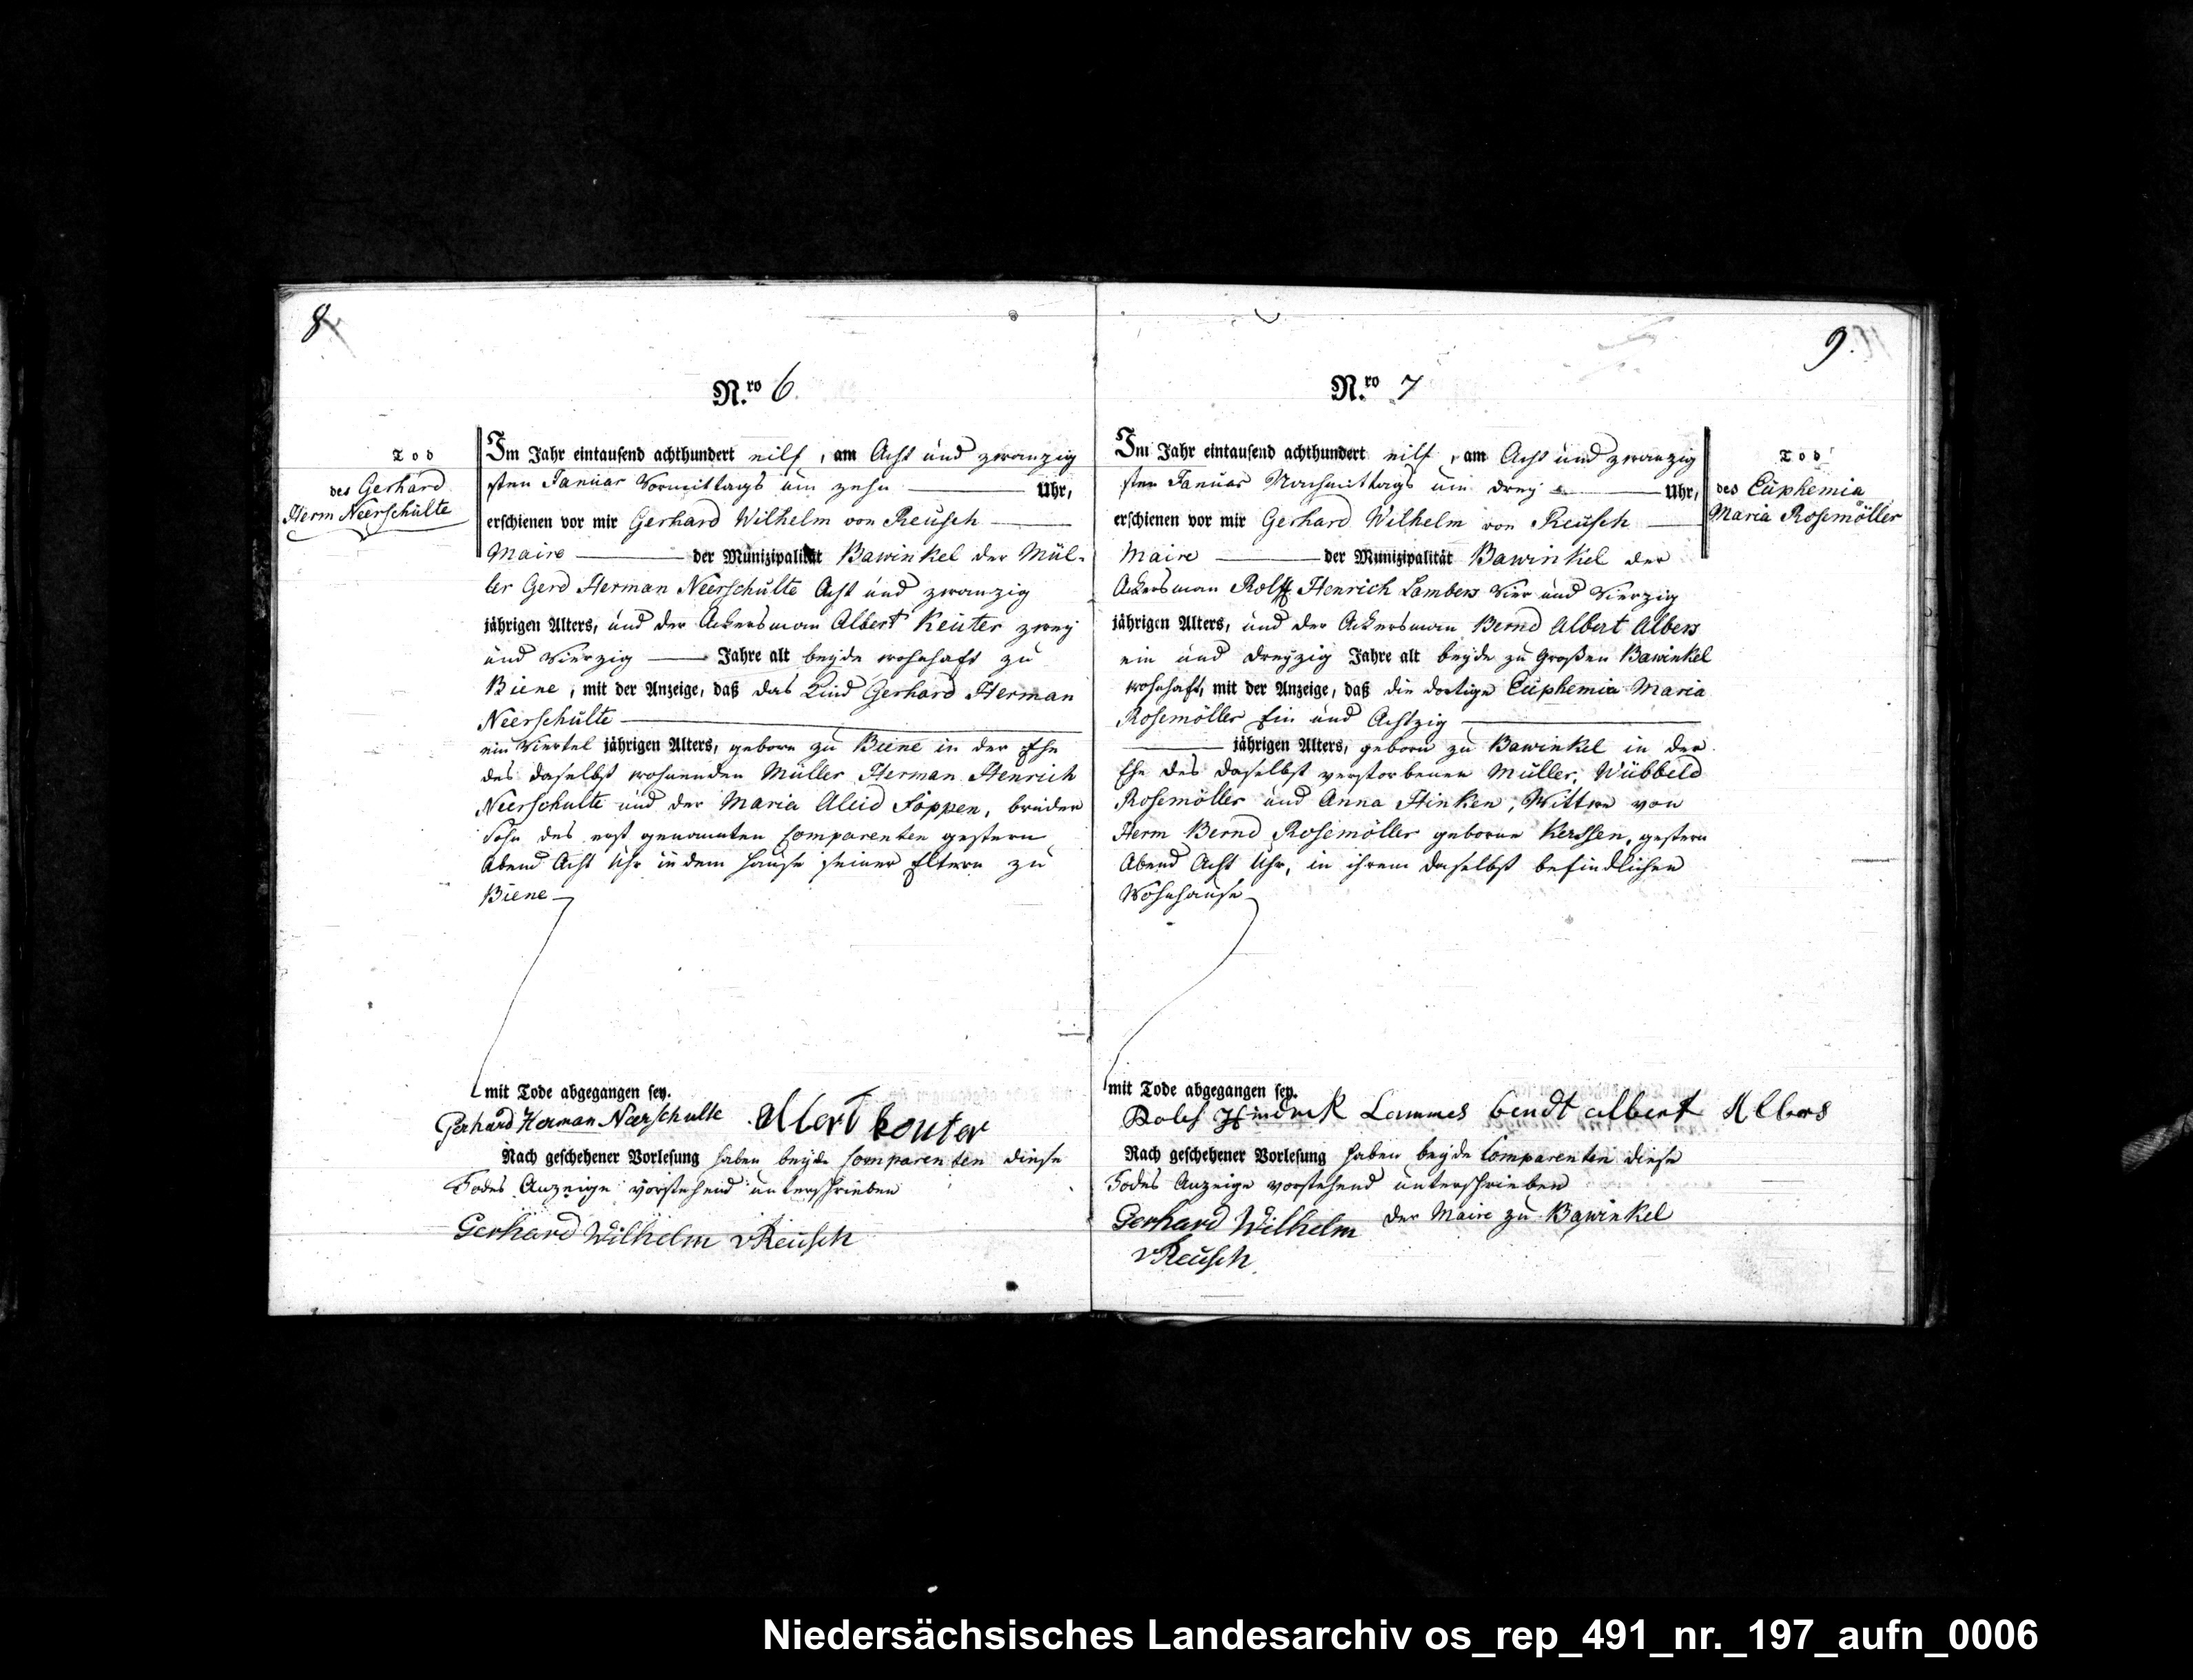 8
N.ro 6.
Tod
des Gerhard
Herm Neerschulte
Im Jahr eintausend achthundert eilf, am Acht und zwanzig
sten Januar Vormittags um zehn Uhr,
erschienen vor mir Gerhard Wilhelm von Reusch
Maire der Munizipalität Bawinkel der Mül-
ler Gerd Herman Neerschulte Acht und zwanzig
jährigen Alters, und der Ackersman Albert Keuter zwey
und Vierzig Jahre alt beyde wohnhaft zu
Biene, mit der Anzeige, daß das Kind Gerhard Herman
Neerschulte
ein Viertel jährigen Alters, geborn zu Biene in der Ehe
des daselbst wohnenden Müller Herman Henrich
Neerschulte und der Maria Aleid Föppen, bruder
Sohn des erst genannten Comparenten gestern
Abend Acht Uhr in dem Hause seiner Eltern zu
Biene
mit Tode abgegangen sey.
Gerhard Herman Neerschulte Albert keuter
Nach geschehener Vorlesung haben beyde Comparenten diese
Todes Anzeige vorstehend unterschrieben
Gerhard Wilhelm vReusch
9.
N.ro 7
Tod
des Euphemia
Maria Rosemöller
Im Jahr eintausend achthundert eilf, am Acht und zwanzig
sten Januar Nachmittags um drey Uhr,
erschienen vor mir Gerhard Wilhelm von Reusch
Maire der Munizipalität Bawinkel der
Ackersman Rolff Henrich Lambers Vier und Vierzig
jährigen Alters, und der Ackersman Bernd Albert Albers
ein und dreyzig Jahre alt beyde zu Großen Bawinkel
wohnhaft, mit der Anzeige, daß die dortige Euphemia Maria
Rosemöller Ein und Achtzig
jährigen Alters, geborn zu Bawinkel in der
Ehe des daselbst verstorbenen Müller, Wübbeld
Rosemöller und Anna Hinken, Wittwe von
Herm Bernd Rosemöller geborne Kerssen, gestern
Abend Acht Uhr, in ihrem daselbst befindlichen
Wohnhause
mit Tode abgegangen sey.
Rolef Hindrik Lammes bendt albert Albers
Nach geschehener Vorlesung haben beyde Comparenten diese
Todes Anzeige vorstehend unterschrieben
Gerhard Wilhelm der Maire zu Bawinkel
vReusch
Niedersächsisches Landesarchiv os_rep_491_nr._197_aufn_0006